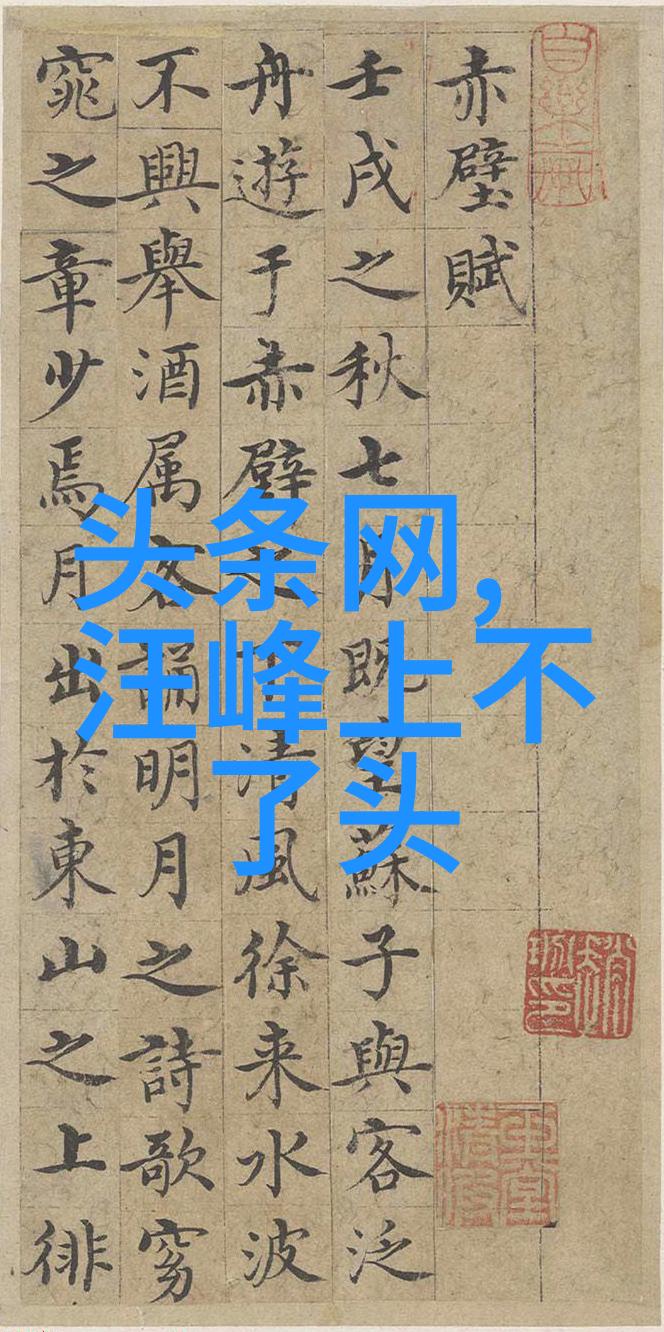 赤壁賦
壬戌之秋七月既望蘇子與客泛
舟遊于赤壁之下清風徐来水波
不興舉酒属客誦明月之詩歌窈
窕之章少焉月出於東山之上徘
头条网,
汪峰上不
了头